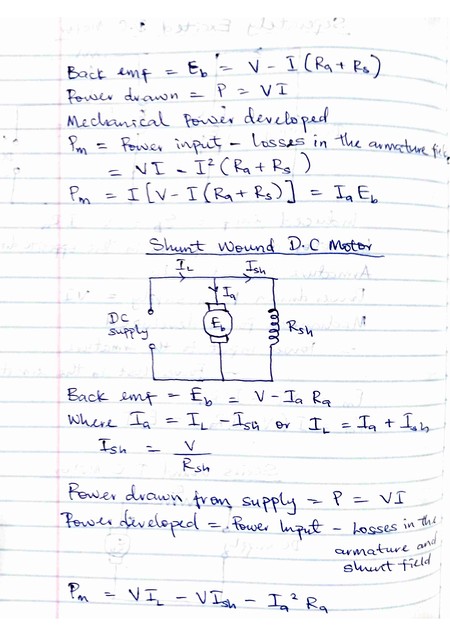 Back emf = Eb = V - I (Ra + Rs)
Power drawn = P = VI
Mechanical Power developed
Pm = Power input - Losses in the armature
= VI - I² (Ra + Rs)
Pm = I [V - I (Ra + Rs)] = Ia Eb
Shunt Wound D.C Motor
IL Ish
Ia
DC
supply
Eb
Rsh
Back emf = Eb = V - Ia Ra
Where Ia = IL - Ish or IL = Ia + Ish
Ish = V
Rsh
Power drawn from supply = P = VI
Power developed = Power Input - Losses in the
armature and
shunt field
Pm = VIL - VIsh - Ia² Ra